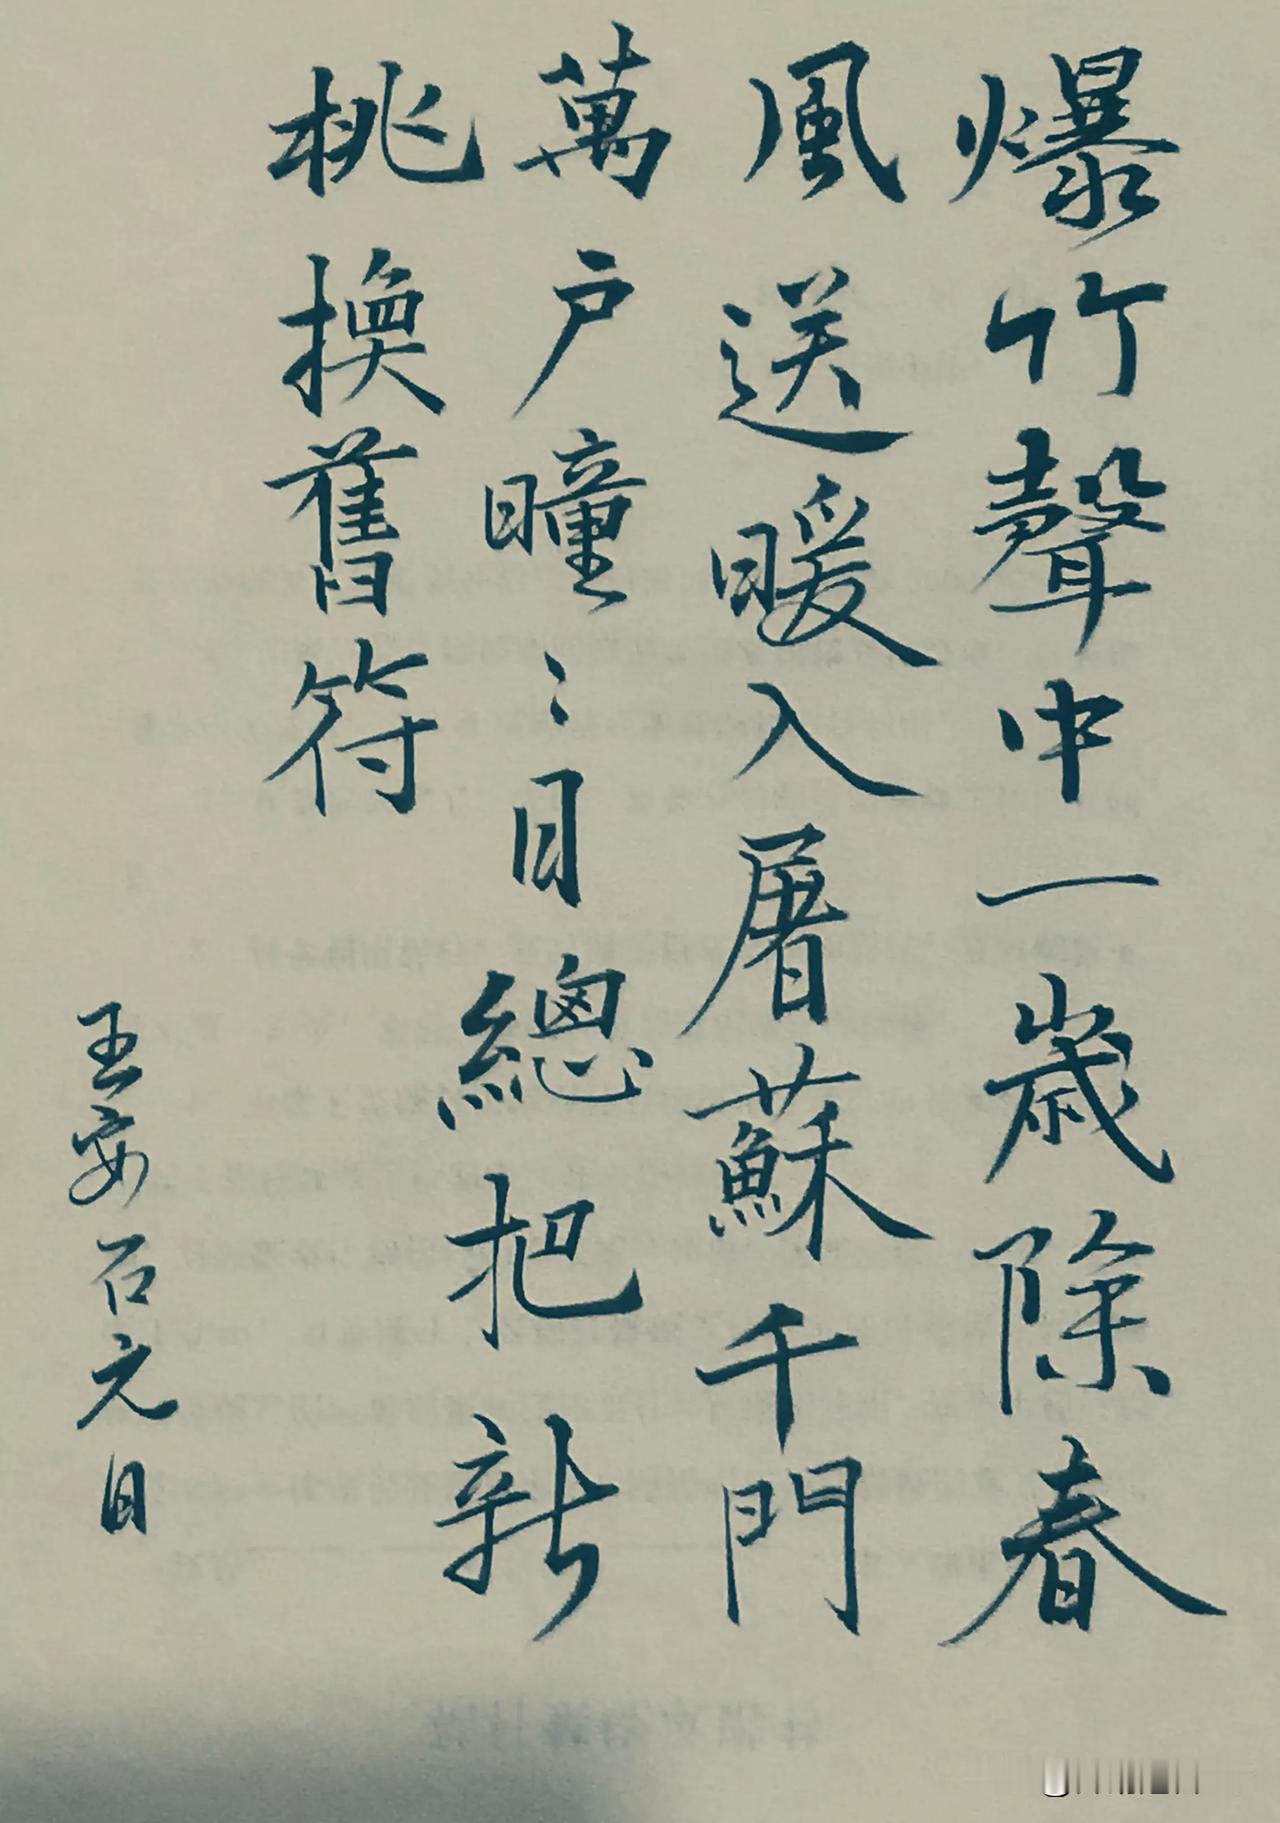 爆竹聲中一歲除春
風送暖入屠蘇千門
萬户曈〻日總把新
桃換舊符
王安石元日